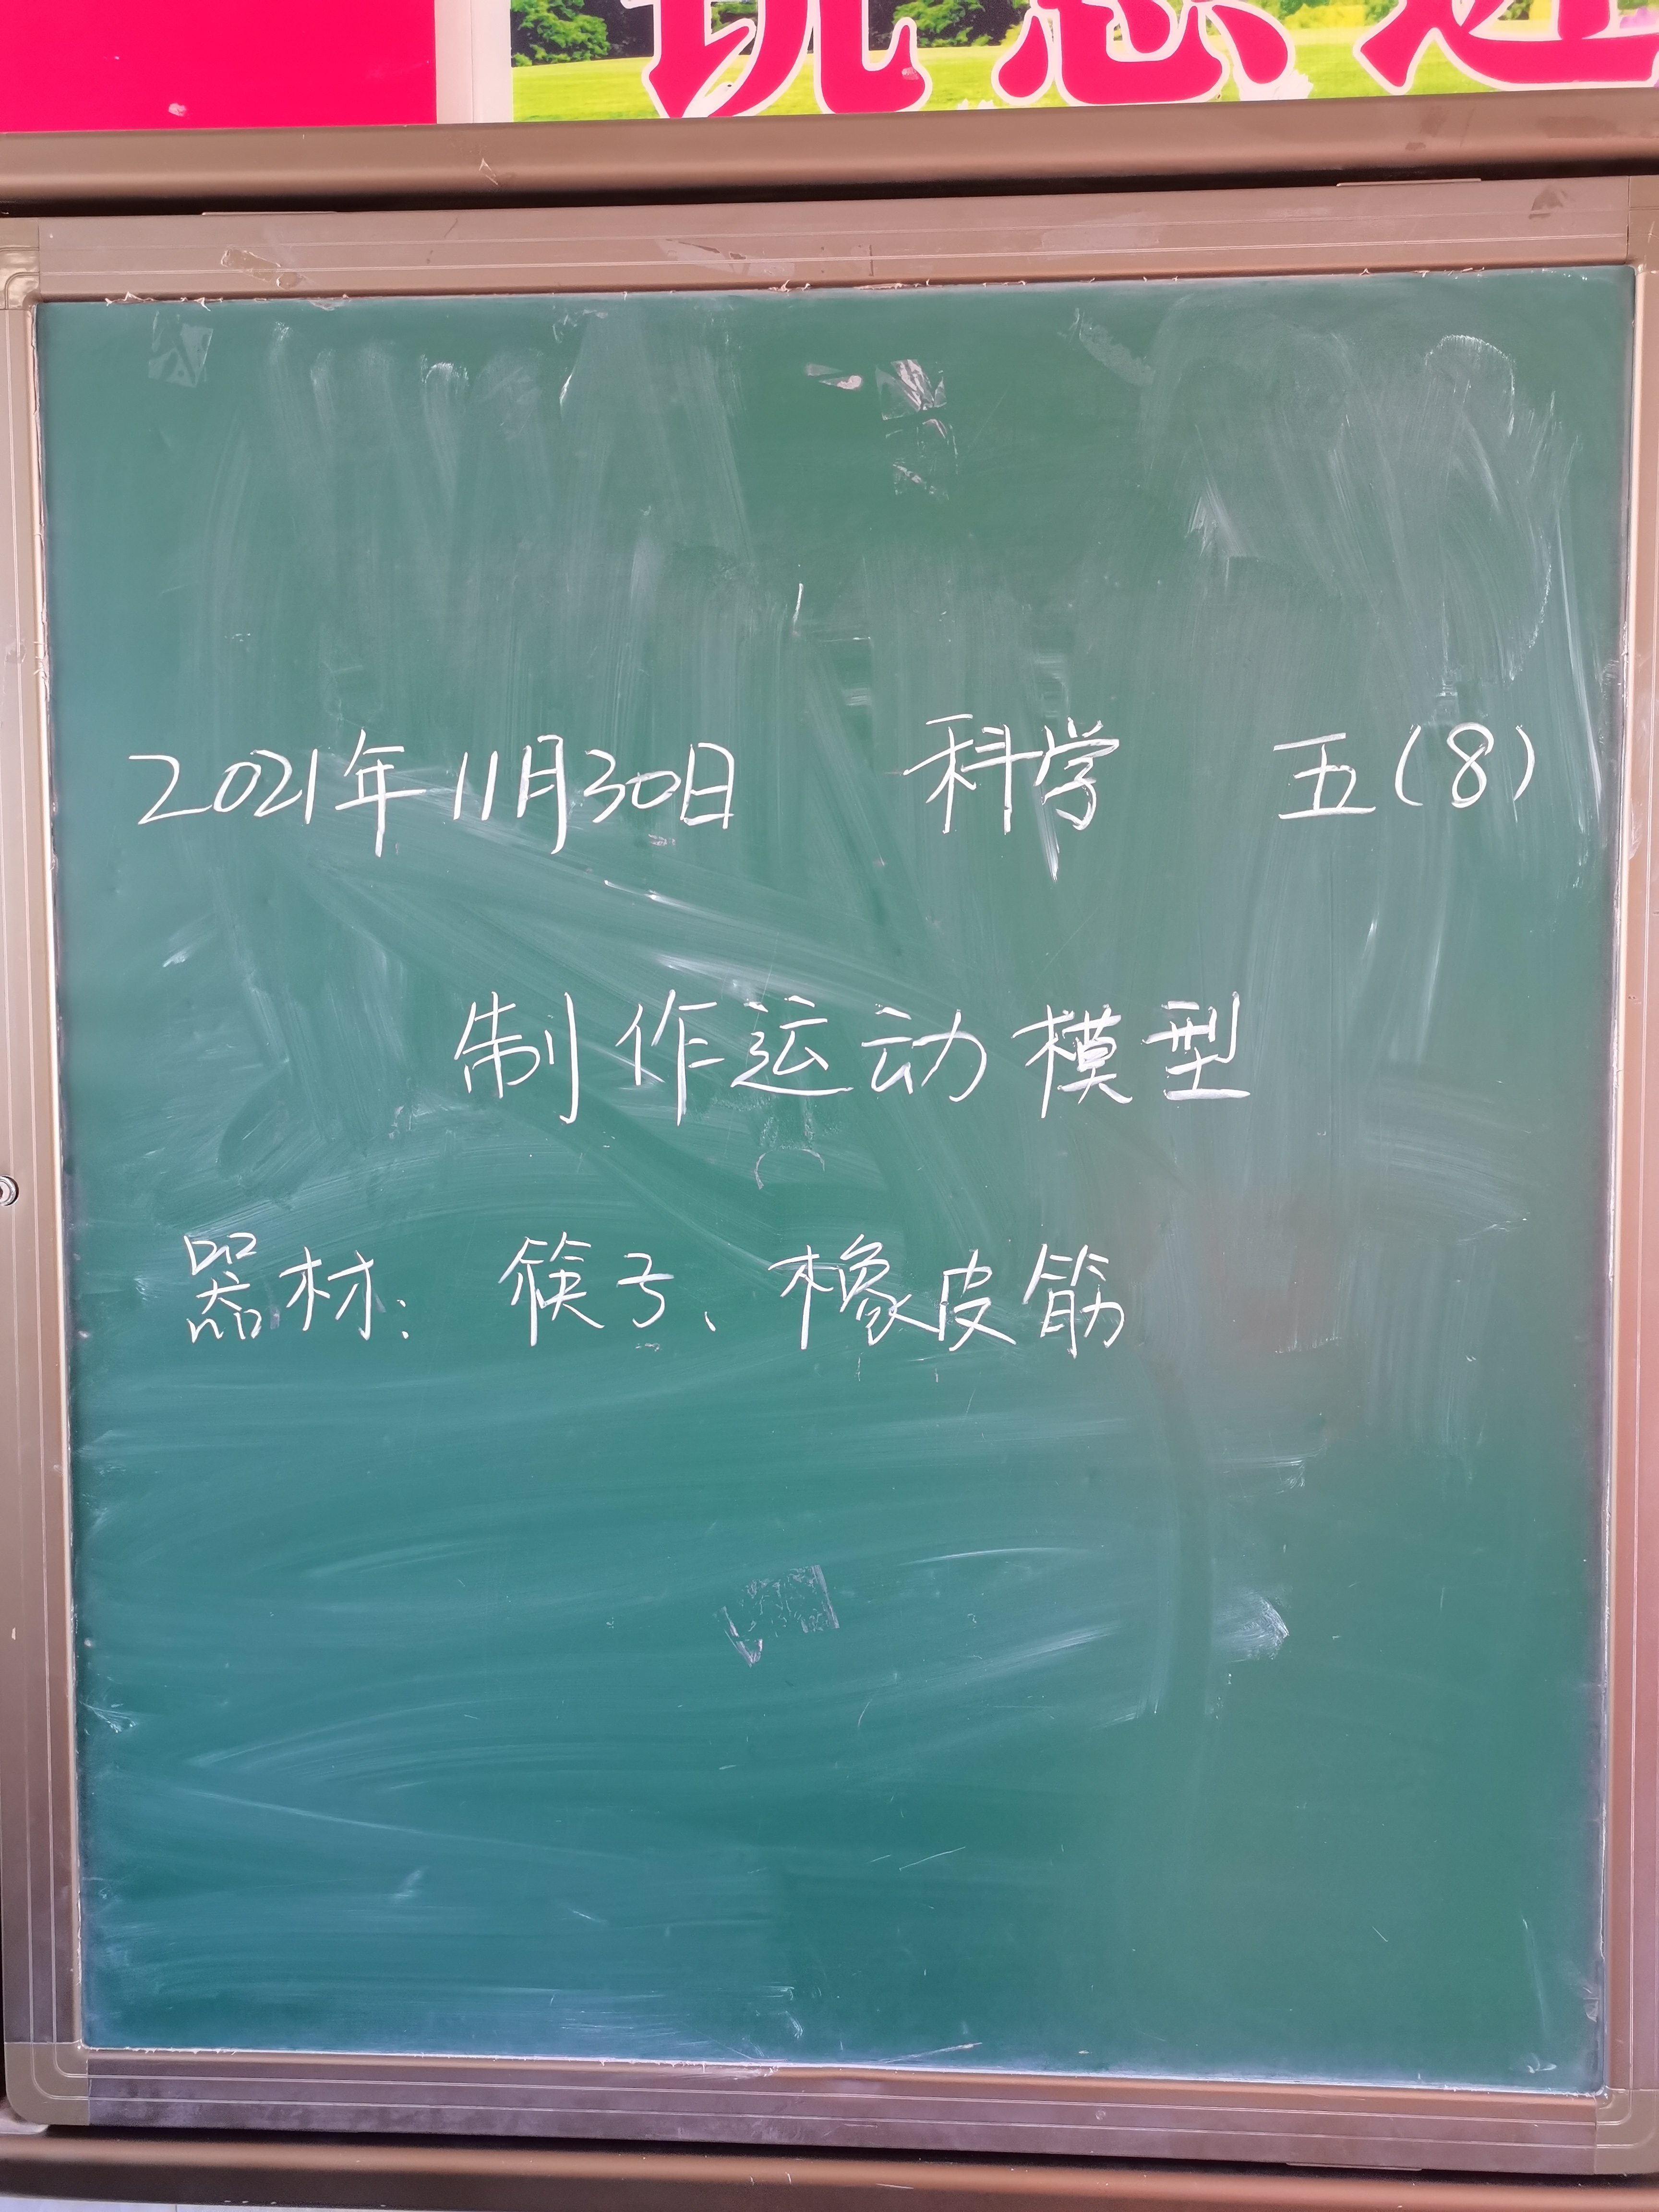 2021年11月30日 科学 五(8)
制作运动模型
器材: 筷子、橡皮筋